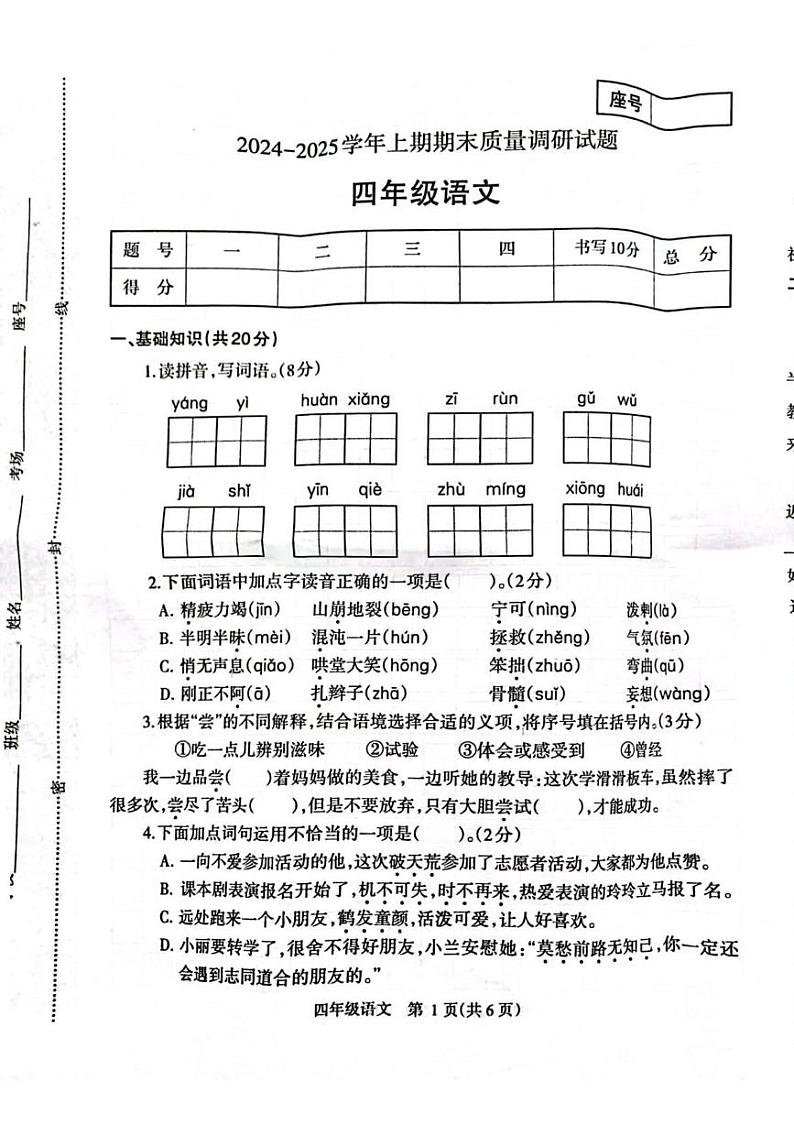 座号
2024-2025学年上期期末质量调研试题
四年级语文
题 号 一 二 三 四 书写10分 总 分
得 分
一、基础知识(共20分)
1.读拼音,写词语。(8分)
yáng yì huàn xiǎng zī rùn gǔ wǔ
jià shǐ yīn qiè zhù míng xiōng huái
2.下面词语中加点字读音正确的一项是( )。(2分)
A. 精疲力竭(jīn) 山崩地裂(bēng) 宁可(nìng) 泼剌(là)
B. 半明半昧(mèi) 混沌一片(hún) 拯救(zhěng) 气氛(fēn)
C. 悄无声息(qiǎo) 哄堂大笑(hōng) 笨拙(zhuō) 弯曲(qū)
D. 刚正不阿(ā) 扎辫子(zhā) 骨髓(suǐ) 妄想(wàng)
3.根据“尝”的不同解释,结合语境选择合适的义项,将序号填在括号内。(3分)
①吃一点儿辨别滋味 ②试验 ③体会或感受到 ④曾经
我一边品尝( )着妈妈做的美食,一边听她的教导:这次学滑滑板车,虽然摔了
很多次,尝尽了苦头( ),但是不要放弃,只有大胆尝试( ),才能成功。
4.下面加点词句运用不恰当的一项是( )。(2分)
A. 一向不爱参加活动的他,这次破天荒参加了志愿者活动,大家都为他点赞。
B. 课本剧表演报名开始了,机不可失,时不再来,热爱表演的玲玲立马报了名。
C. 远处跑来一个小朋友,鹤发童颜,活泼可爱,让人好喜欢。
D. 小丽要转学了,很舍不得好朋友,小兰安慰她:“莫愁前路无知己,你一定还
会遇到志同道合的朋友的。”
四年级语文 第 1 页(共 6 页)
座号
考场
姓名
班级
线
封
密